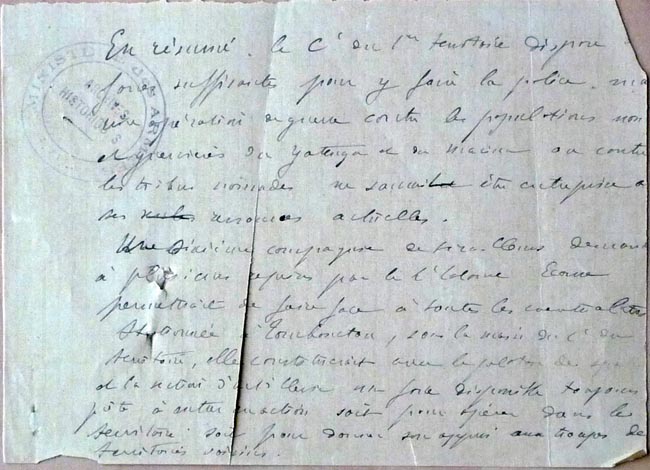 MINISTÈRE DES ARM
ARCHIVES
HISTORIQUES
En résumé, le Ct du 1er territoire dispose
forces suffisantes pour y faire la police, mais
une opération de guerre contre les populations non
et guerrières du Yatenga et du Macina ou contre
les tribus nomades ne saurait être entreprise a
ses ressources actuelles.
Une sixième compagnie de tirailleurs demand
à plusieurs reprises par le Lt Colonel
permettrait de faire face à toutes les éventualités
Stationnée à Tombouctou, sous la main du Ct du
territoire, elle constituerait avec le peloton de spahis
et la section d'artillerie une force disponible toujours
prête à entrer en action soit pour opérer dans le
territoire soit pour donner son appui aux troupes de
territoires voisins.